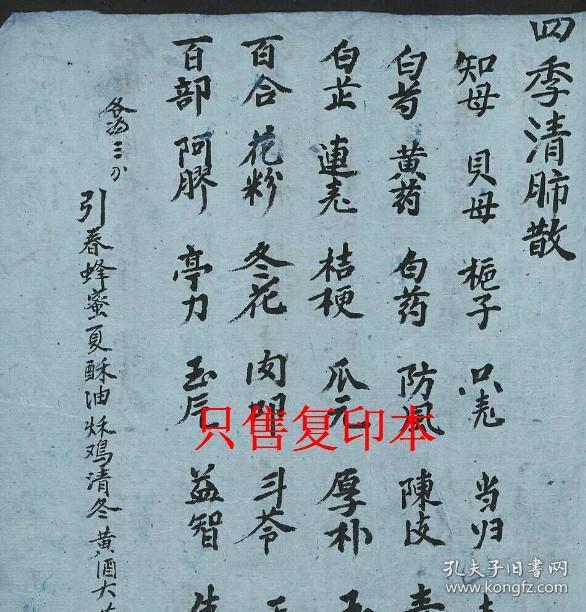 四季清肺散
知母 貝母 梔子 只壳 当归
白芍 黄药 白药 防风 陳皮
白芷 連壳 桔梗 瓜元 厚朴
百合 花粉 冬花 肉 斗苓
百部 阿膠 亭力 玉 益智
各為三分
引春蜂蜜夏酥油秌鸡清冬黄酒大
只售复印本
孔夫子旧书网
www.kongfz.com